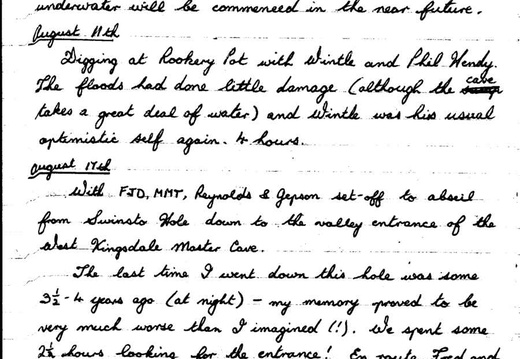 underwater will be commenced in the near future.
August 11th
Digging at Rookery Pot with Wintle and Phil Hendy.
The floods had done little damage (although the cave
takes a great deal of water) and Wintle was his usual
optimistic self again. 4 hours.
August 17th
With FJD, MMT, Reynolds & Jepson set-off to abseil
from Swinsto Hole down to the valley entrance of the
West Kingsdale Master Cave.
The last time I went down this hole was some
3½-4 years ago (at night) - my memory proved to be
very much worse than I imagined (!). We spent some
2½ hours looking for the entrance! En route Fred and